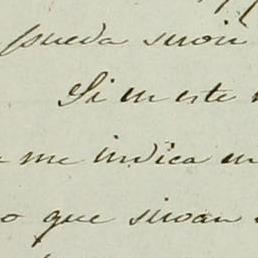 pueda servir
Si en este
me indica en
o que sirvan